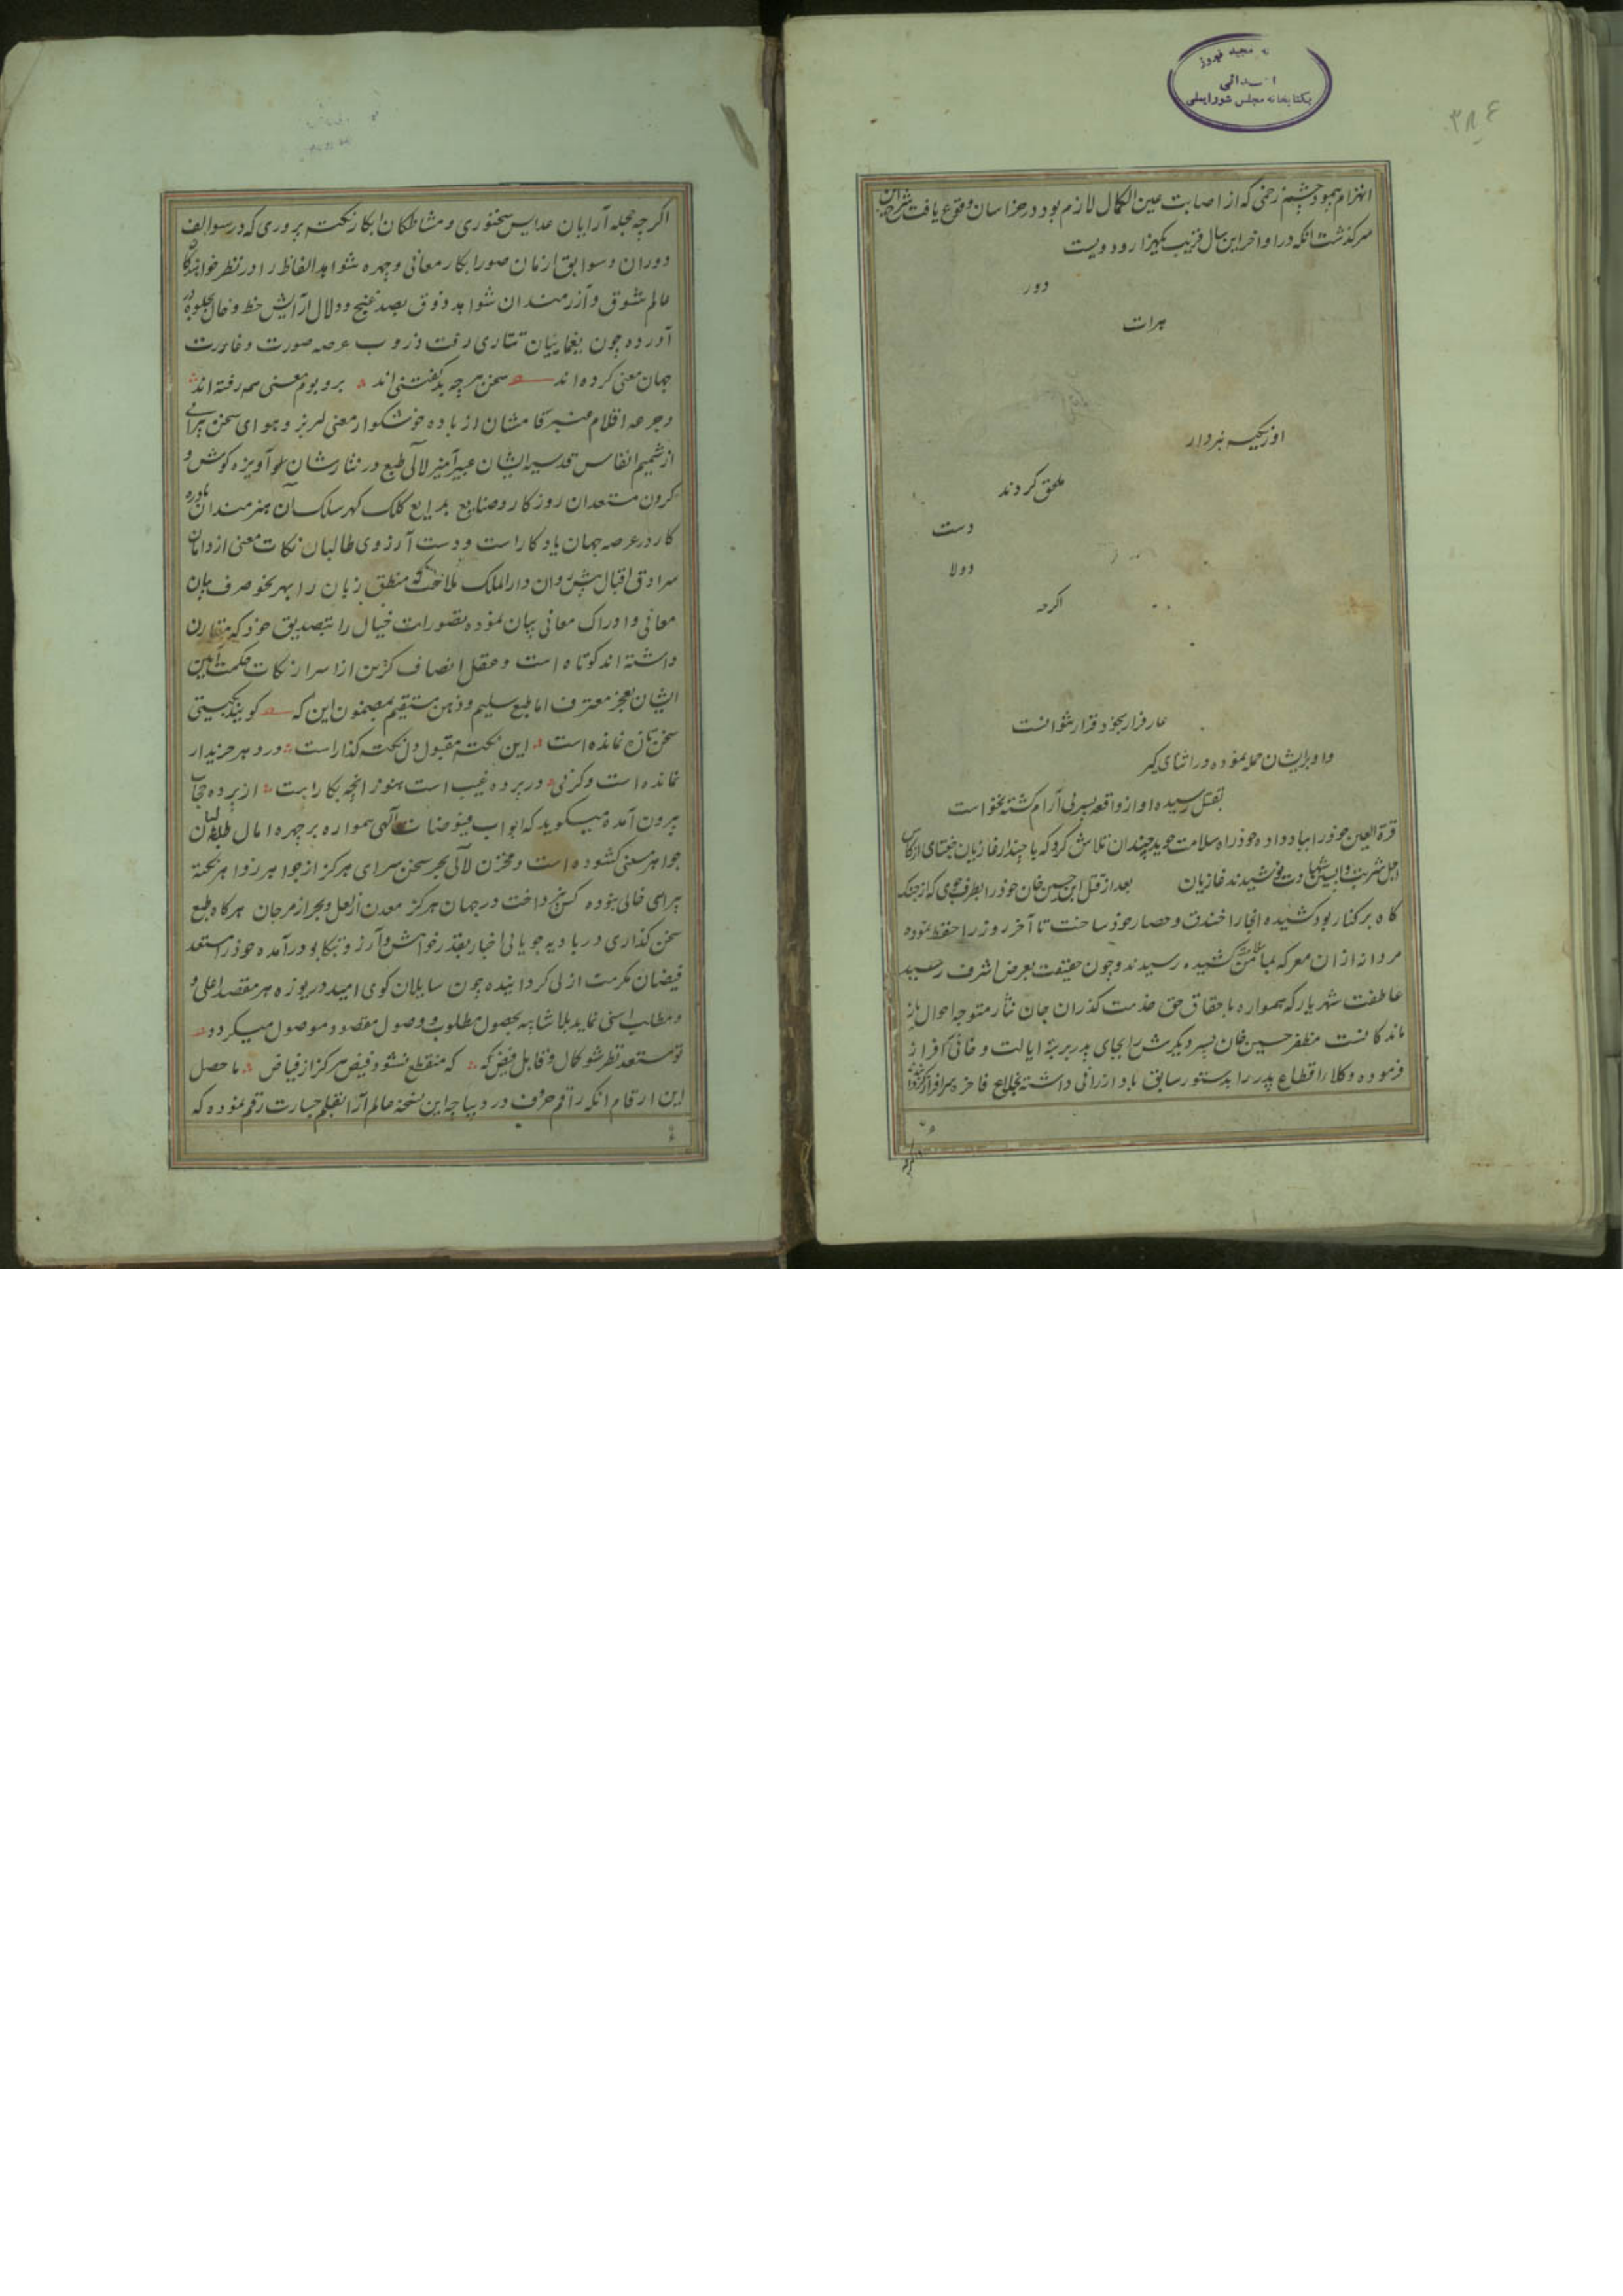 مجید فیروز
کتابخانه مجلس شورایملی
۳۸۶
انهزام بهبود چشم زخمی که از اصابت عین الکمال لازم بود در خراسان وقوع یافت شرح این
سرکذشت انکه در اواخر این سال قریب بکهزار و دویست
دور
هرات
اوزبکیه نبردار
ملحق کردند
دست
دولا
اکرچه
عار فرار بخود قرار نتوانست
و او برایشان حمله نموده در اثنای کیر
بقتل رسیده او از واقعه پسر بی آرام کشته نخواست
قرة العین خود را بباد داده خود راه سلامت جوید چندان تلاش کرد که با چندار غازیان جغتای از کاس
اجل شربت واپسین شهادت نوشیدند غازیان بعد از قتل این حسین خان خود را بطرف جوی که از جنک
کاه بر کنار بود کشیده انجا را خندق و حصار خود ساخت تا آخر روز را حفظ نموده
مردانه از آن معرکه بمأمن کشیده رسیدند و چون حقیقت بعرض اشرف رسید
عاطفت شهریار که همواره باحقاق حق خدمت کذران جان نثار متوجه احوال باز
ماندکانست مظفر حسین خان پسر دیکرش را بجای پدر برتبه ایالت و خانی سرافراز
فرموده و کلا اقطاع پدر را بدستور سابق باو ارزانی داشته بخلاع فاخره سرافراز کردید
اکرچه
اکرچه حجله آرایان عرایس سخنوری و مشاطکان ابکار نکته پروری که در سوالف
دوران و سوابق ازمان صور ابکار معانی و چهره شواهد الفاظ را در نظر خواهندکان
عالم شوق و آرزمندان شواهد ذوق بصد غنج و دلال آرایش خط و خال بجلوه در
آورده چون یغماییان تتاری رفت و روب عرصه صورت و غارت
جهان معنی کرده اند سخن هرچه بد کفتنی اند بر و بوم معنی همه رفته اند
و جرعه اقلام عنبر فامشان از باده خوشکوار معنی لبریز و هوای سخن پیرائی
از شمیم انفاس قدسیه ایشان عبیر آمیز لآلی طبع در نثارشان آویزه کوش و
کردن مستعدان روزکار و صنایع بدایع کلک کهر سلکشان هنرمندان نادره
کار در عرصه جهان یادکار است و دست آرزوی طالبان نکات معنی از دامان
سرادق اقبال پیش روان دار الملک بلاغت که منطق زبان را بهر نحو صرف بیان
معانی و ادراک معانی بیان نموده تصورات خیال را بتصدیق خرد که مقارن
داشته اند کوتاه است و عقل انصاف کزین از اسرار نکات حکمت آیین
ایشان بعجز معترف اما طبع سلیم و ذهن مستقیم بمضمون این که کویند بکیتی
سخن تازه نمانده است این نکته مقبول دل نکته کذار است در دهر خریدار
نمانده است و کرنی در پرده غیب است هنوز انچه بکار است از پرده حجاب
برون آمده میکوید که ابواب فیوضات الهی همواره بر چهره امال طالبان
جواهر معنی کشوده است و مخزن لآلی بحر سخن سرای هرکز از جواهر زواهر نکته
پیرای خالی نبوده کس نپرداخت در جهان هرکز معدن از لعل و بحر از مرجان هرکاه طبع
سخن کذاری در بادیه جویائی اخبار بقدر خواهش و آرزو تکاپو درآمده خود را مستعد
فیضان مکرمت ازلی کردانیده چون سایلان کوی امید دریوزه هر مقصد اعلی و
و مطالب اسنی نماید بلا شائبه بحصول مطلوب و وصول مقصود موصول میکردد
تو مستعد نظر شو کمال و قابل فیض که منقطع نشود فیض هرکز از فیاض ماحصل
این ارقام انکه راقم حروف در دیباچه این نسخه عالم آرا بقلم جسارت رقم نموده که